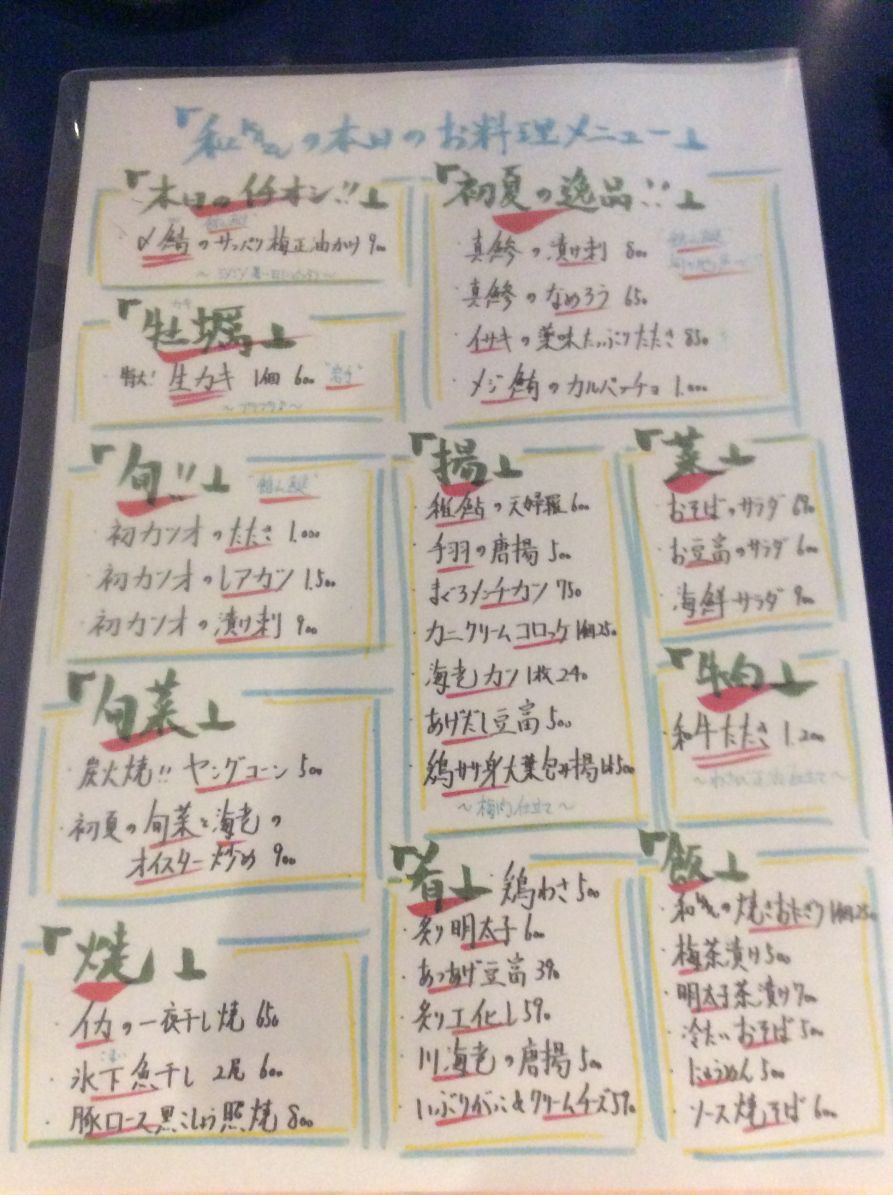 『和Kanの本日のお料理メニュー』
『本日のイチオシ!!』
〆鯖のサッパリ梅正油かけ 900
『牡蠣』
カキ
特大! 生カキ 1個 600
『旬!!』
初カツオのたたき 1.000
初カツオのレアカツ 1.500
初カツオの漬け刺 900
『旬菜』
・炭火焼!! ヤングコーン 500
・初夏の旬菜と海老の
オイスター炒め 900
『焼』
・イカの一夜干し焼 650
・氷下魚干し 2尾 600
・豚ロース黒こしょう照焼 800
『初夏の逸品!!』
・真鯵の漬け刺 800
・真鯵のなめろう 650
・イサキの薬味たっぷりたたき 850
・メジ鮪のカルパッチョ 1.000
『揚』
・稚鮎の天婦羅 600
・手羽の唐揚 500
・まぐろメンチカツ 750
・カニクリームコロッケ 1個 250
・海老カツ 1枚 240
・あげだし豆富 500
・鶏ササ身大葉包み揚 1本 500
～梅肉仕立て～
『肴』 鶏わさ 500
・炙り明太子 600
・あつあげ豆富 390
・炙り工化し 590
・川海老の唐揚 500
・いぶりがっこ&クリームチーズ 590
『菜』
・おそばのサラダ 690
・お豆富のサラダ 600
・海鮮サラダ 900
『牛肉』
・和牛たたき 1.200
『飯』
・和Kanの焼きおにぎり 1個 250
・梅茶漬け 500
・明太子茶漬け 700
・冷たいおそば 500
・にゅうめん 500
・ソース焼そば 600